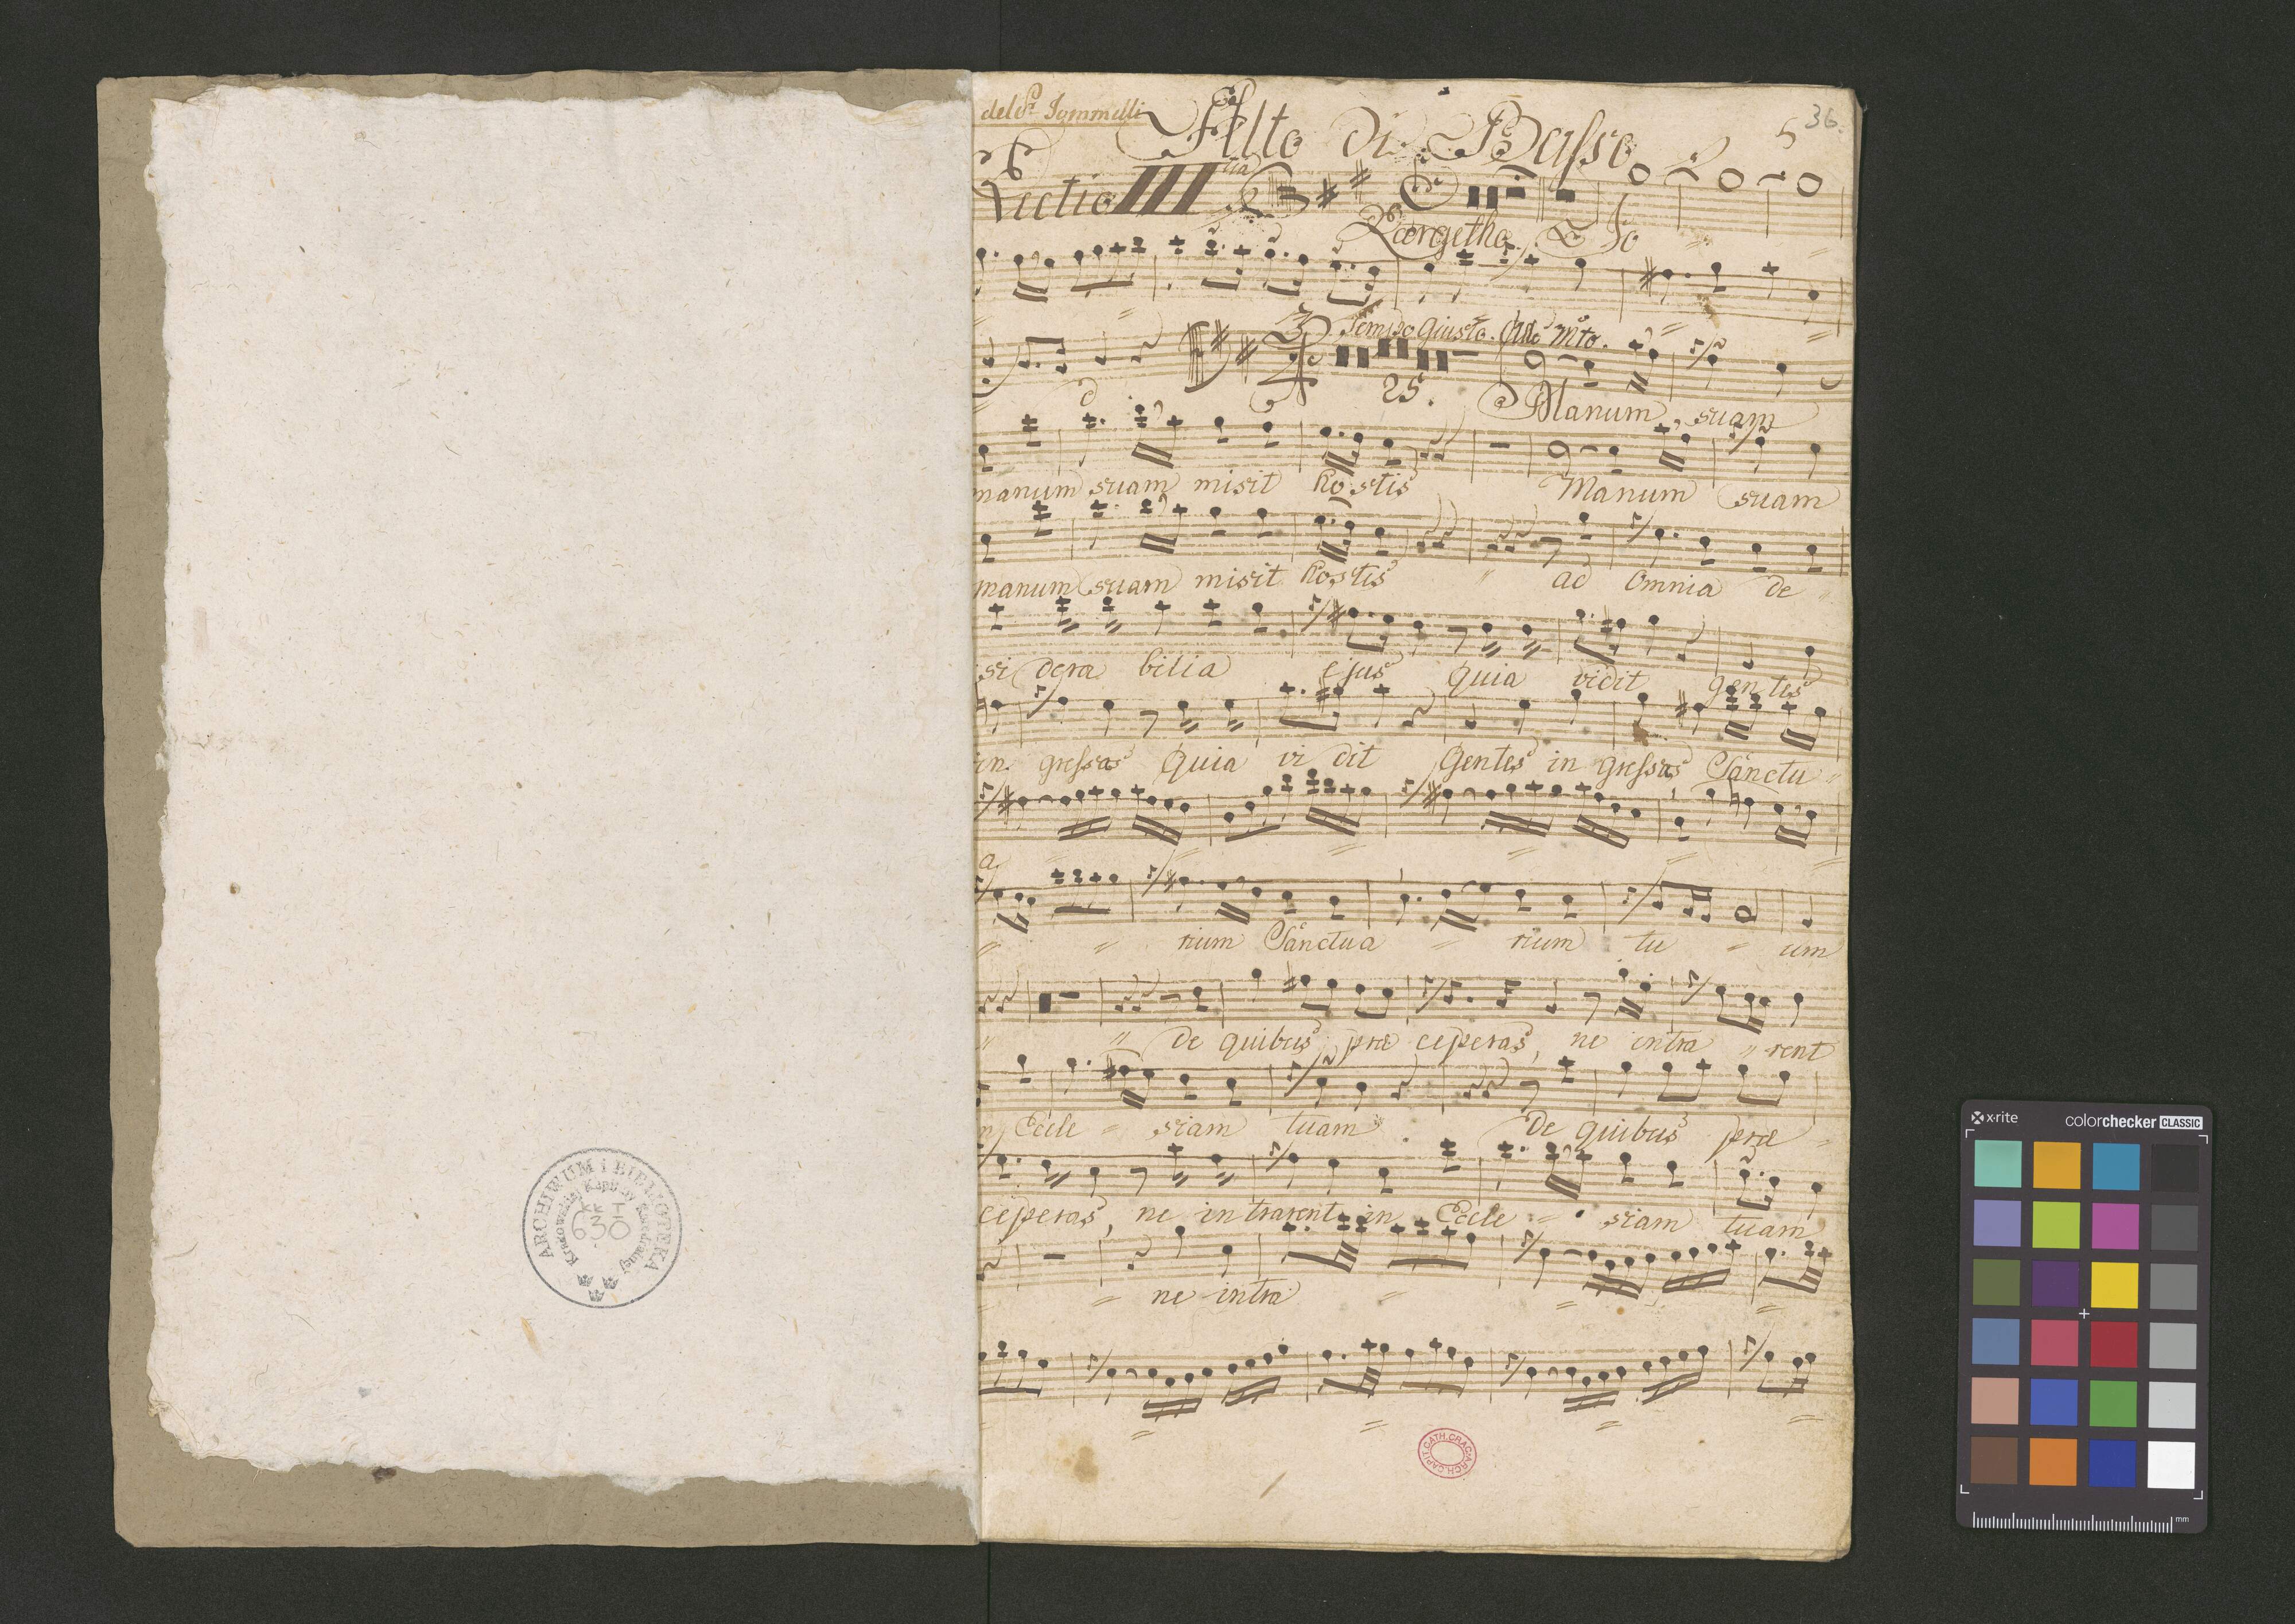 ARCHIWUM i BIBLIOTEKA
Krakowskiej Kapituły Katedralnej
KK I
630
del Sr Jommelli
Alto di Basso
5
36.
Lectio IIItia
Largetho. Jo
3/4 Tempo giusto. Mto.
25.
Manum suam
manum suam misit hostis Manum suam
manum suam misit hostis ad omnia de
si dera bilia ejus quia vidit gentes
in gressas quia vi dit Gentes in gressas Sanctu
a
rium Sanctua rium tu um
de quibus præ ceperas, ne intra rent
Eccle siam tuam De quibus præ
ceperas, ne in trarent in Eccle siam tuam
ne intra
ARCH.CAPIT.CATH.CRAC.
x-rite colorchecker CLASSIC
mm